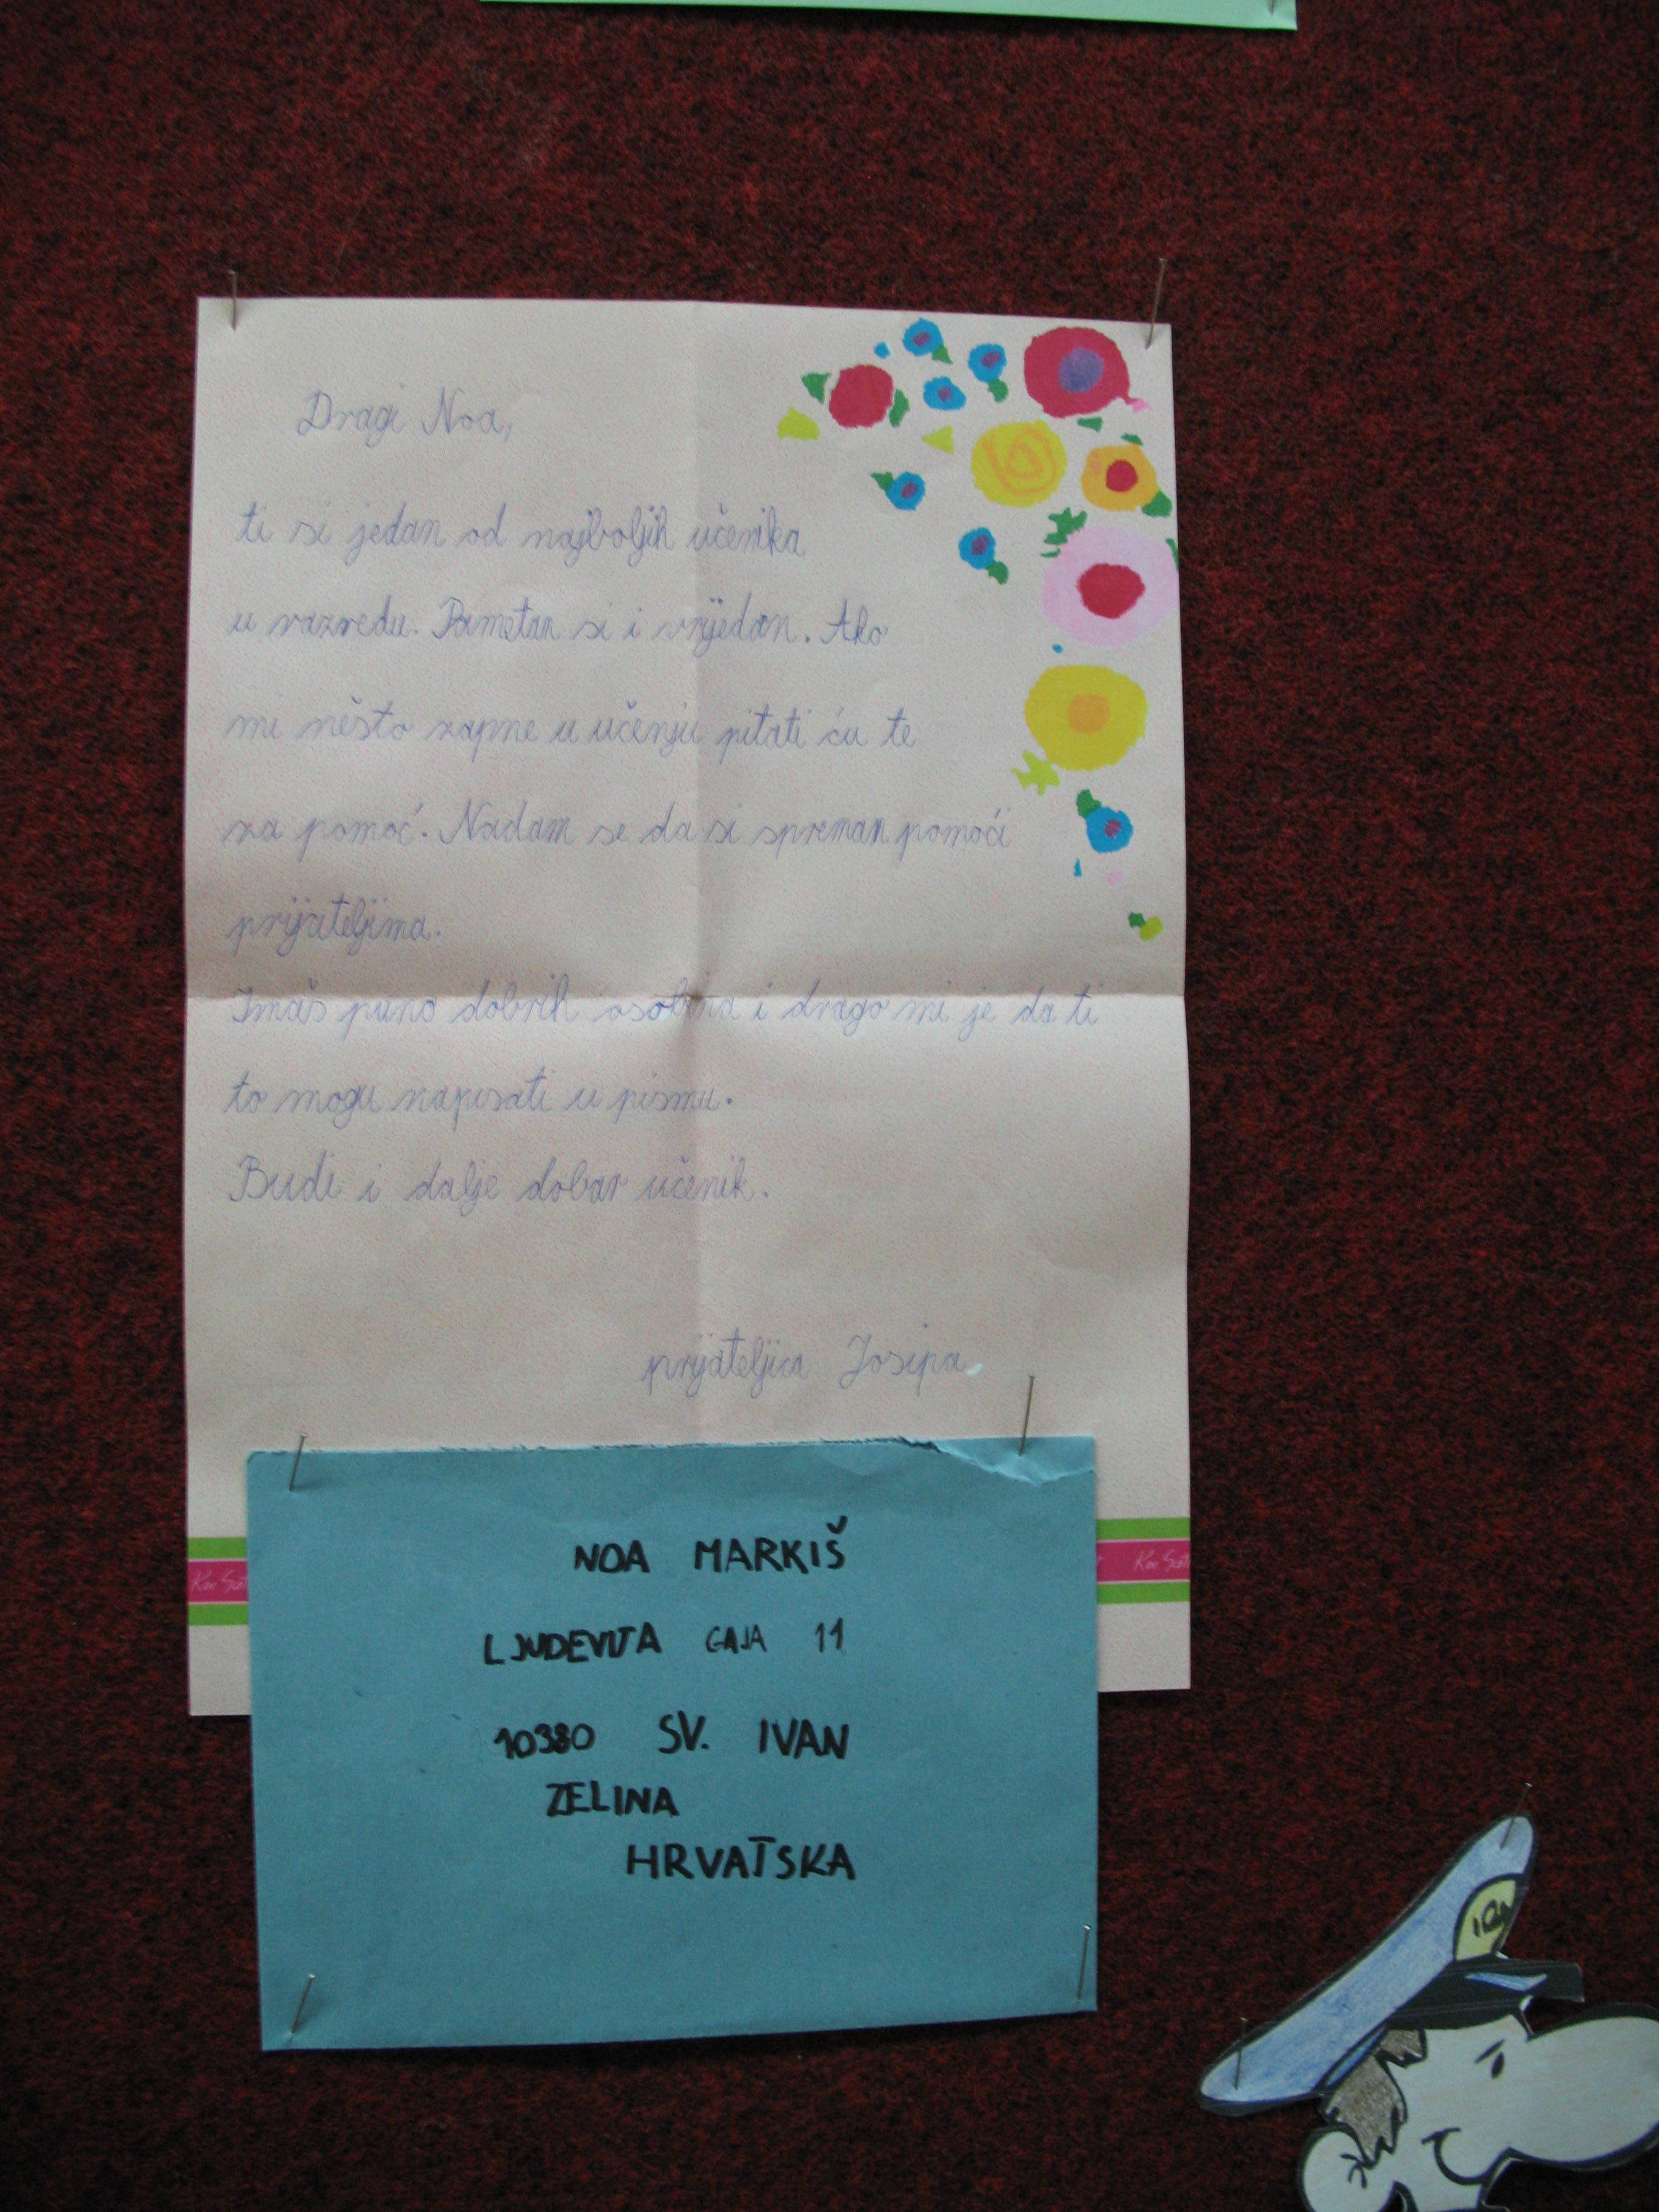 Dragi Noa,
ti si jedan od najboljih učenika
u razredu. Pametan si i vrijedan. Ako
mi nešto zapne u učenju pitati ću te
za pomoć. Nadam se da si spreman pomoći
prijateljima.
Imaš puno dobrih osobina i drago mi je da ti
to mogu napisati u pismu.
Budi i dalje dobar učenik.
prijateljica Josipa
NOA MARKIŠ
LJUDEVITA GAJA 11
10380 SV. IVAN
ZELINA
HRVATSKA